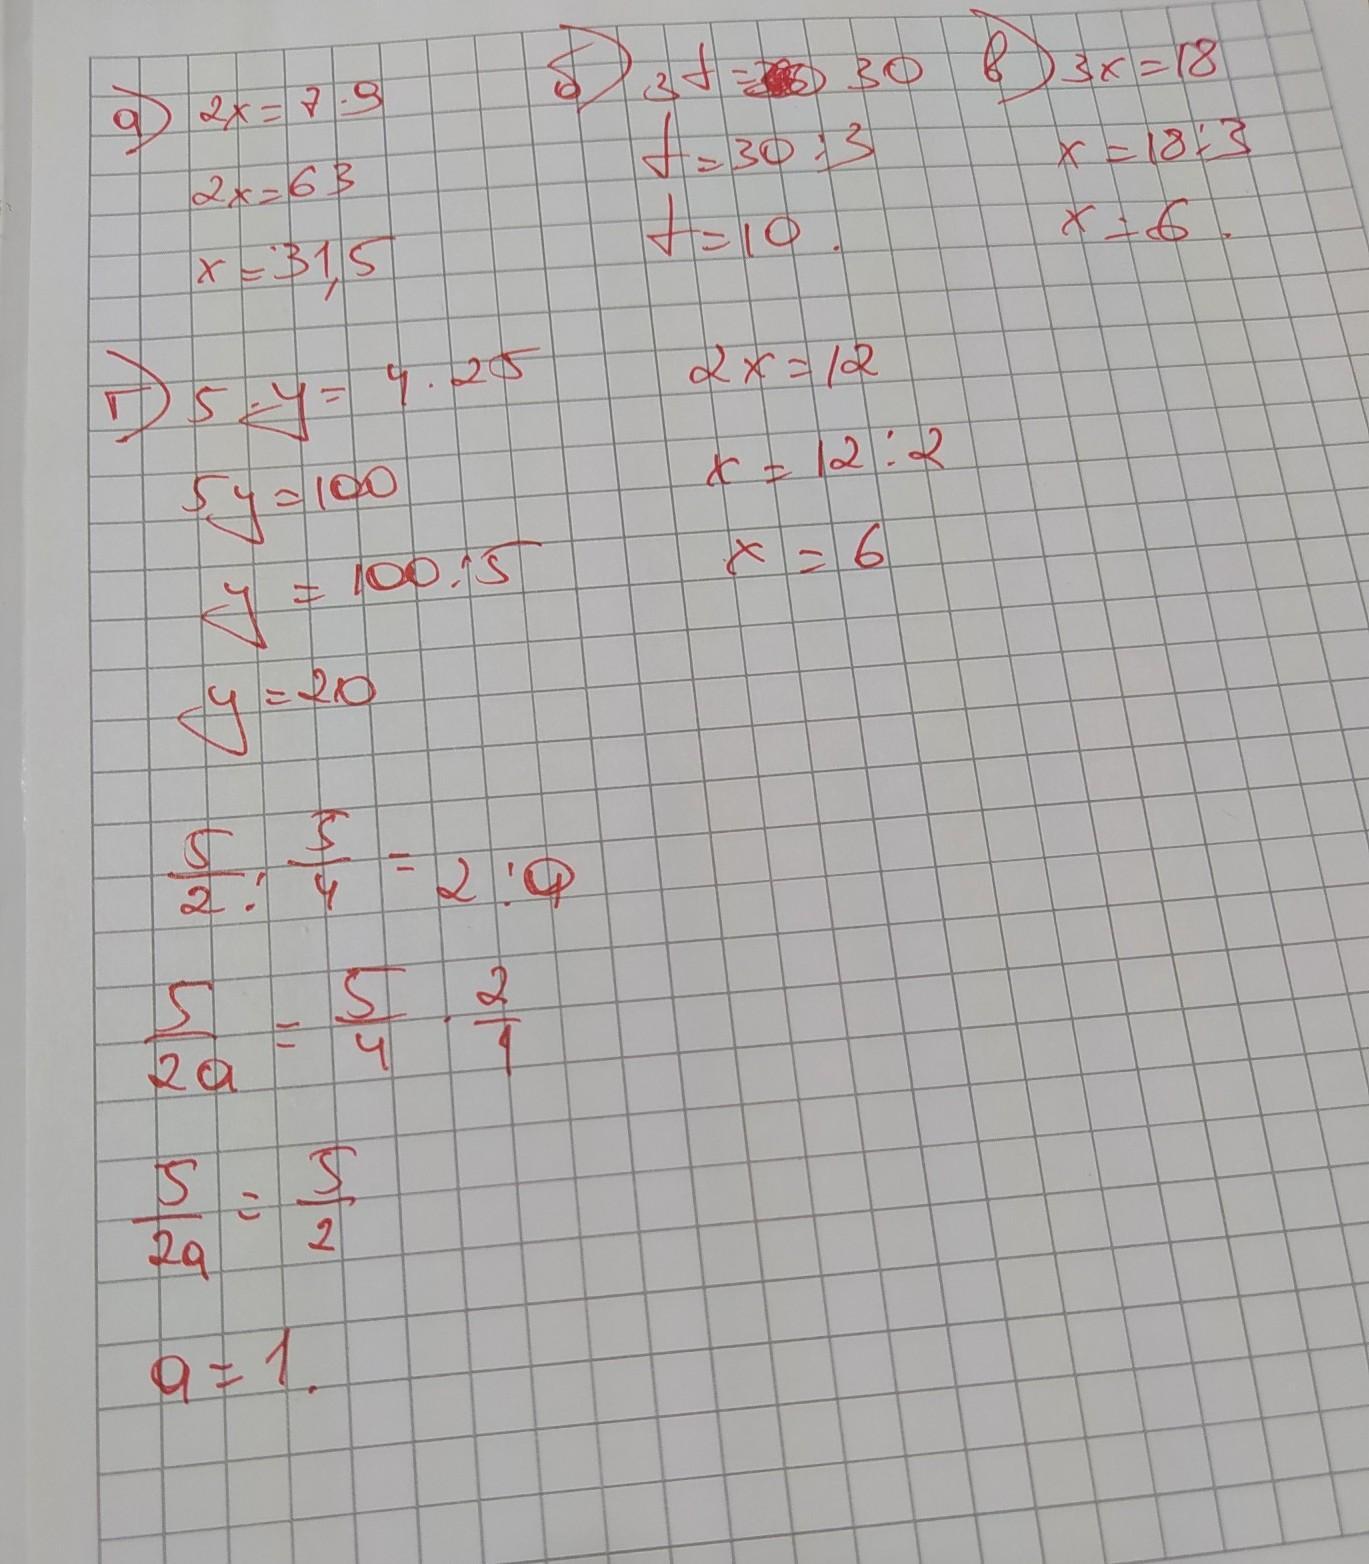 а) 2x = 7 · 9
2x = 63
x = 31,5
б) 3t = 30
t = 30 : 3
t = 10.
в) 3x = 18
x = 18 : 3
x = 6.
г) 5 · y = 4 · 25
5y = 100
y = 100 : 5
y = 20
2x = 12
x = 12 : 2
x = 6
5/2 : 5/4 = 2 : a
5/2a = 5/4 · 2/1
5/2a = 5/2
a = 1.